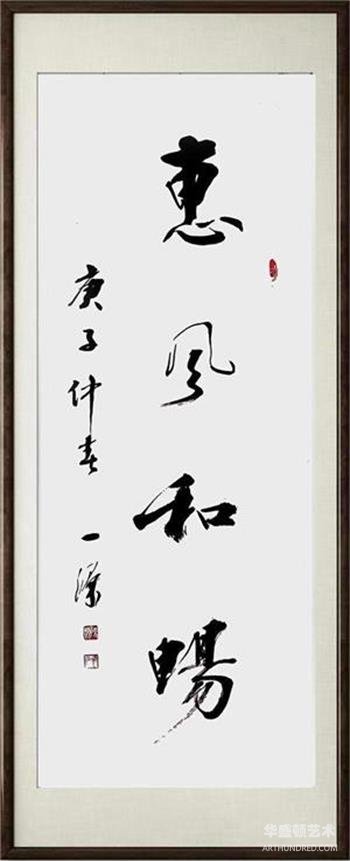 惠风和畅
庚子仲春 一
华盛顿艺术
ARTHUNDRED.COM